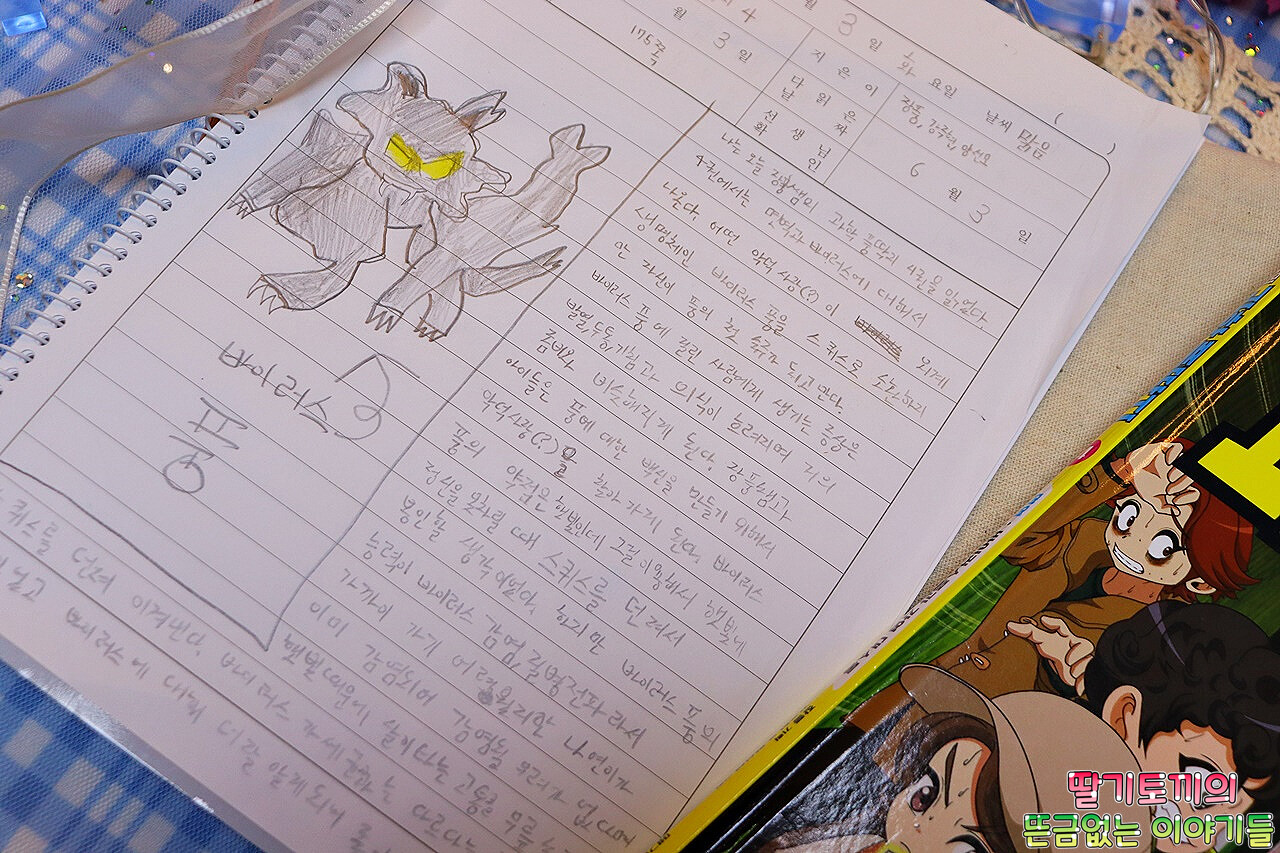 4
월 3 일 화 요일 날씨 맑음
월 3 일
175쪽
지 은 이
장풍, 강주현, 양선모
다 읽 은 날 짜
6 월 3 일
선 생 님 확 인
나는 오늘 장풍쌤의 과학 풍딱지 4권을 읽었다.
4권에서는 면역과 바이러스에 대해서
나온다. 어떤 악덕 사장(?) 이 외계
생명체인 바이러스 풍을 스퀴스로 소환하지
만 자신이 풍의 첫 숙주가 되고 만다.
바이러스 풍에 걸린 사람에게 생기는 증상은
발열, 두통, 기침과 의식이 흐려지며 거의
좀비와 비슷해지게 된다. 장풍쌤과
아이들은 풍에 대한 백신을 만들기 위해서
악덕사장(?)을 찾아가게 된다. 바이러스
풍의 약점은 햇빛인데 그걸 이용해서 햇빛에
정신을 못차릴 때 스퀴스를 던져서
봉인할 생각이었다. 하지만 바이러스 풍의
능력이 바이러스 감염, 질병전파라서
가까이 가기 어려웠지만 나연이가
이미 감염되어 감염될 우려가 없으며
햇빛때문에 풍을 무릅
바이러스
풍
퀴스를 던져 이겨낸다. 바이러스 다르다는
바이러스에 대해 더 잘 알게되서
딸기토끼의
뜬금없는 이야기들